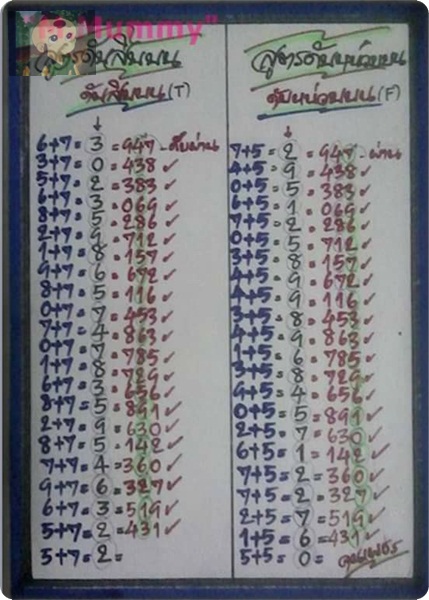 Mummy"
สูตรดับสิบบน
ดับสิบบน(T)
↓
6+7=3=947-ดับผ่าน
3+7=0=438✓
5+7=2=383✓
6+7=3=069✓
8+7=5=286✓
2+7=9=712✓
1+7=8=157✓
9+7=6=672✓
8+7=5=116✓
0+7=7=453✓
7+7=4=863✓
0+7=7=785✓
1+7=8=729✓
6+7=3=656✓
8+7=5=891✓
2+7=9=630✓
8+7=5=142✓
7+7=4=360✓
9+7=6=327✓
6+7=3=519✓
5+7=2=431✓
5+7=2=
สูตรดับหน่วยบน
ดับหน่วยบน(F)
↓
7+5=2=947-ผ่าน
4+5=9=438✓
0+5=5=383✓
6+5=1=069✓
7+5=2=286✓
0+5=5=712✓
3+5=8=157✓
4+5=9=672✓
4+5=9=116✓
3+5=8=453✓
4+5=9=863✓
1+5=6=785✓
3+5=8=729✓
9+5=4=656✓
0+5=5=891✓
2+5=7=630✓
6+5=1=142✓
7+5=2=360✓
7+5=2=327✓
2+5=7=519✓
1+5=6=431✓
5+5=0=